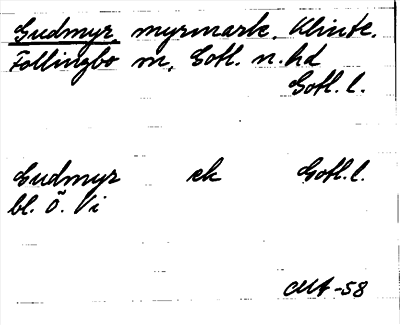 Gudmyr, myrmark, Klinte,
Follingbo m, Gotl. n. hd
Gotl. l.
Gudmyr ek Gotl. l.
bl. Ö. Vi
-58